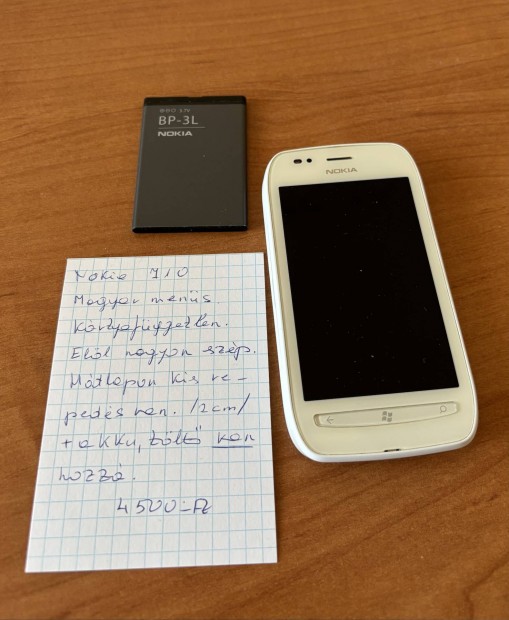 BP-3L
NOKIA
NOKIA
Nokia 710
Magyar menüs
Kártyafüggetlen.
Elöl nagyon szép.
Hátlapon kis re-
pedés van. /2cm/
+ akku, töltő van
hozzá.
4500.-Ft